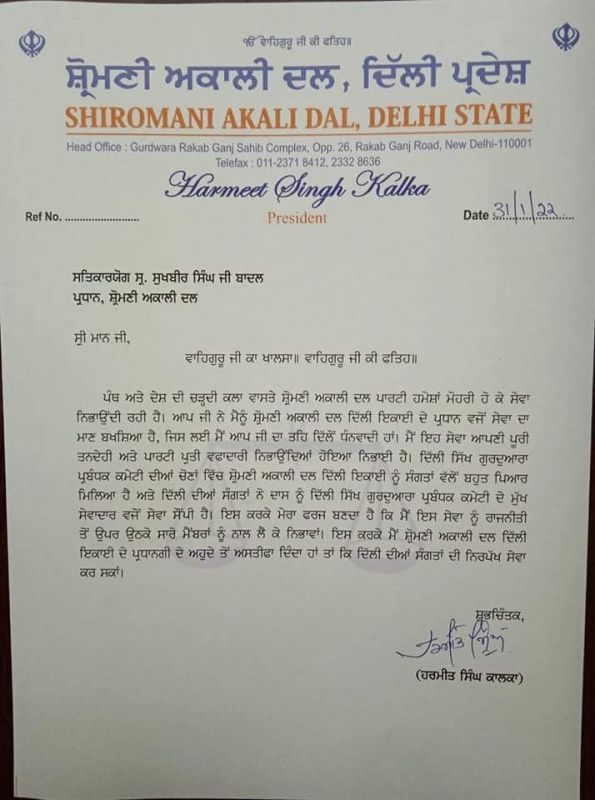 ੴ ਵਾਹਿਗੁਰੂ ਜੀ ਕੀ ਫਤਿਹ॥
ਸ਼੍ਰੋਮਣੀ ਅਕਾਲੀ ਦਲ, ਦਿੱਲੀ ਪ੍ਰਦੇਸ਼
SHIROMANI AKALI DAL, DELHI STATE
Head Office : Gurdwara Rakab Ganj Sahib Complex, Opp. 26, Rakab Ganj Road, New Delhi-110001
Telefax : 011-2371 8412, 2332 8636
Harmeet Singh Kalka
President
Ref No. ........................
Date 31/1/22
ਸਤਿਕਾਰਯੋਗ ਸ੍ਰ. ਸੁਖਬੀਰ ਸਿੰਘ ਜੀ ਬਾਦਲ
ਪ੍ਰਧਾਨ, ਸ਼੍ਰੋਮਣੀ ਅਕਾਲੀ ਦਲ
ਸ੍ਰੀ ਮਾਨ ਜੀ,
ਵਾਹਿਗੁਰੂ ਜੀ ਕਾ ਖਾਲਸਾ॥ ਵਾਹਿਗੁਰੂ ਜੀ ਕੀ ਫਤਿਹ॥
ਪੰਥ ਅਤੇ ਦੇਸ਼ ਦੀ ਚੜ੍ਹਦੀ ਕਲਾ ਵਾਸਤੇ ਸ਼੍ਰੋਮਣੀ ਅਕਾਲੀ ਦਲ ਪਾਰਟੀ ਹਮੇਸ਼ਾਂ ਮੋਹਰੀ ਹੋ ਕੇ ਸੇਵਾ
ਨਿਭਾਉਂਦੀ ਰਹੀ ਹੈ। ਆਪ ਜੀ ਨੇ ਮੈਨੂੰ ਸ਼੍ਰੋਮਣੀ ਅਕਾਲੀ ਦਲ ਦਿੱਲੀ ਇਕਾਈ ਦੇ ਪ੍ਰਧਾਨ ਵਜੋਂ ਸੇਵਾ ਦਾ
ਮਾਣ ਬਖਸ਼ਿਆ ਹੈ, ਜਿਸ ਲਈ ਮੈਂ ਆਪ ਜੀ ਦਾ ਤਹਿ ਦਿੱਲੋਂ ਧੰਨਵਾਦੀ ਹਾਂ। ਮੈਂ ਇਹ ਸੇਵਾ ਆਪਣੀ ਪੂਰੀ
ਤਨਦੇਹੀ ਅਤੇ ਪਾਰਟੀ ਪ੍ਰਤੀ ਵਫਾਦਾਰੀ ਨਿਭਾਉਂਦਿਆਂ ਹੋਇਆ ਨਿਭਾਈ ਹੈ। ਦਿੱਲੀ ਸਿੱਖ ਗੁਰਦੁਆਰਾ
ਪ੍ਰਬੰਧਕ ਕਮੇਟੀ ਦੀਆਂ ਚੋਣਾਂ ਵਿੱਚ ਸ਼੍ਰੋਮਣੀ ਅਕਾਲੀ ਦਲ ਦਿੱਲੀ ਇਕਾਈ ਨੂੰ ਸੰਗਤਾਂ ਵੱਲੋਂ ਬਹੁਤ ਪਿਆਰ
ਮਿਲਿਆ ਹੈ ਅਤੇ ਦਿੱਲੀ ਦੀਆਂ ਸੰਗਤਾਂ ਨੇ ਦਾਸ ਨੂੰ ਦਿੱਲੀ ਸਿੱਖ ਗੁਰਦੁਆਰਾ ਪ੍ਰਬੰਧਕ ਕਮੇਟੀ ਦੇ ਮੁੱਖ
ਸੇਵਾਦਾਰ ਵਜੋਂ ਸੇਵਾ ਸੌਂਪੀ ਹੈ। ਇਸ ਕਰਕੇ ਮੇਰਾ ਫਰਜ ਬਣਦਾ ਹੈ ਕਿ ਮੈਂ ਇਸ ਸੇਵਾ ਨੂੰ ਰਾਜਨੀਤੀ
ਤੋਂ ਉਪਰ ਉਠਕੇ ਸਾਰੇ ਮੈਂਬਰਾਂ ਨੂੰ ਨਾਲ ਲੈ ਕੇ ਨਿਭਾਵਾਂ। ਇਸ ਕਰਕੇ ਮੈਂ ਸ਼੍ਰੋਮਣੀ ਅਕਾਲੀ ਦਲ ਦਿੱਲੀ
ਇਕਾਈ ਦੇ ਪ੍ਰਧਾਨਗੀ ਦੇ ਅਹੁਦੇ ਤੋਂ ਅਸਤੀਫਾ ਦਿੰਦਾ ਹਾਂ ਤਾਂ ਕਿ ਦਿੱਲੀ ਦੀਆਂ ਸੰਗਤਾਂ ਦੀ ਨਿਰਪੱਖ ਸੇਵਾ
ਕਰ ਸਕਾਂ।
ਸ਼ੁਭਚਿੰਤਕ,
ਹਰਮੀਤ ਸਿੰਘ
(ਹਰਮੀਤ ਸਿੰਘ ਕਾਲਕਾ)